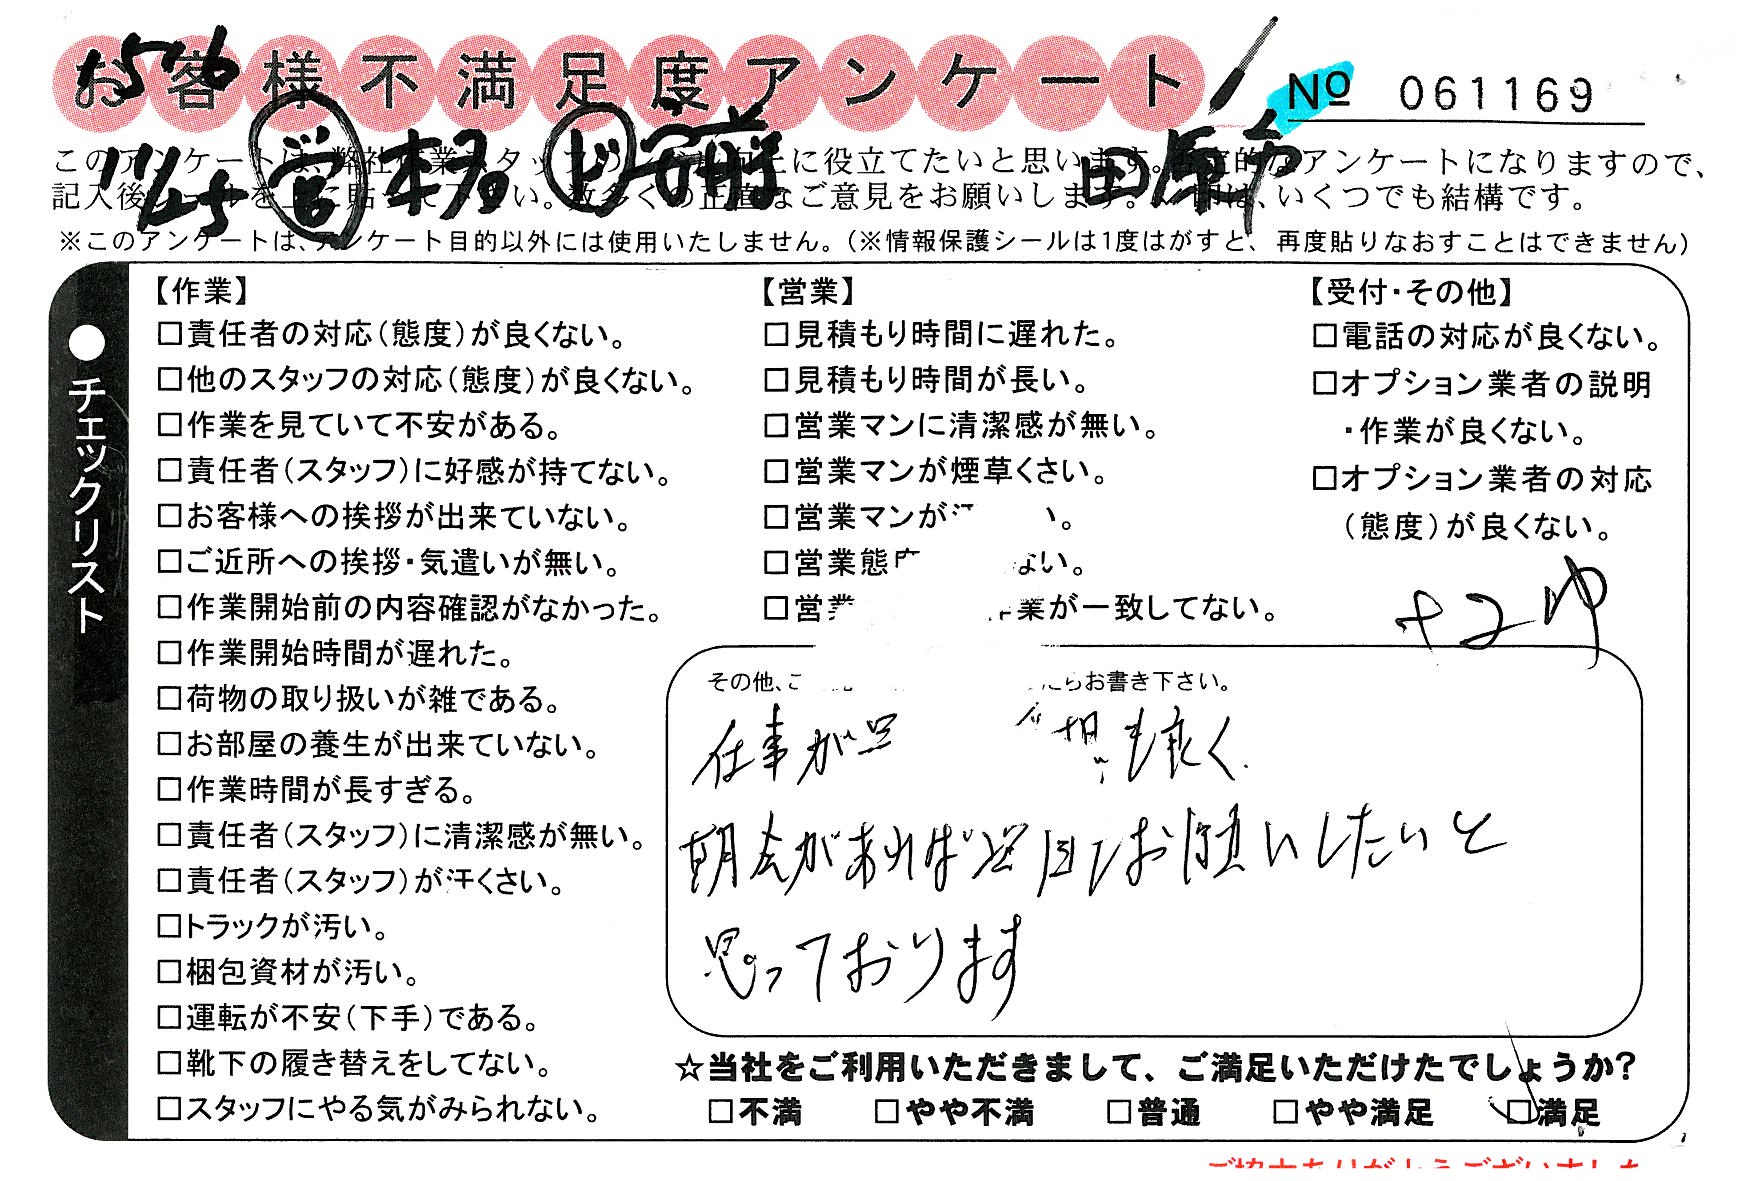 お客様不満足度アンケート
No 061169
576
11/25 営 本多 ド 安前 田原
このアンケートは、弊社作業スタッフのサービス向上に役立てたいと思います。否定的なアンケートになりますので、
記入後シールを上に貼って下さい。数多くの正直なご意見をお願いします。いくつでも結構です。
※このアンケートは、アンケート目的以外には使用いたしません。(※情報保護シールは1度はがすと、再度貼りなおすことはできません)
●チェックリスト
【作業】
□責任者の対応(態度)が良くない。
□他のスタッフの対応(態度)が良くない。
□作業を見ていて不安がある。
□責任者(スタッフ)に好感が持てない。
□お客様への挨拶が出来ていない。
□ご近所への挨拶・気遣いが無い。
□作業開始前の内容確認がなかった。
□作業開始時間が遅れた。
□荷物の取り扱いが雑である。
□お部屋の養生が出来ていない。
□作業時間が長すぎる。
□責任者(スタッフ)に清潔感が無い。
□責任者(スタッフ)が汗くさい。
□トラックが汚い。
□梱包資材が汚い。
□運転が不安(下手)である。
□靴下の履き替えをしてない。
□スタッフにやる気がみられない。
【営業】
□見積もり時間に遅れた。
□見積もり時間が長い。
□営業マンに清潔感が無い。
□営業マンが煙草くさい。
□営業マンが い。
□営業態度 ない。
□営業 作業が一致してない。
【受付・その他】
□電話の対応が良くない。
□オプション業者の説明
・作業が良くない。
□オプション業者の対応
(態度)が良くない。
その他、ご たらお書き下さい。
仕事が早 も良く
機会があれば是非お願いしたいと
思っております
☆当社をご利用いただきまして、ご満足いただけたでしょうか?
□不満 □やや不満 □普通 □やや満足 □満足
ご協力ありがとうございました